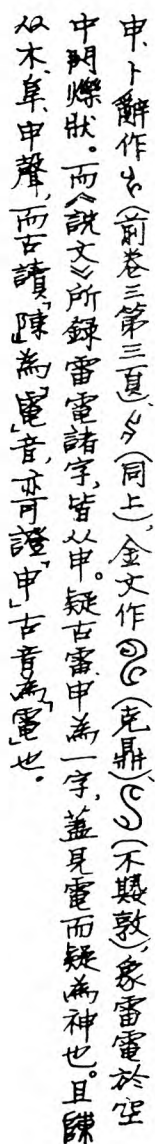 申、卜辭作(前卷三第三頁)、(同上)、金文作(克鼎)、(不𡢁敦),象雷電於空
中閃爍狀。而《說文》所錄雷電諸字,皆从申。疑古雷、申為一字,蓋見電而疑為神也。且「陳」
从木、𨸏,申聲,而古讀「陳」為「電」音,亦可證「申」古音為「電」也。